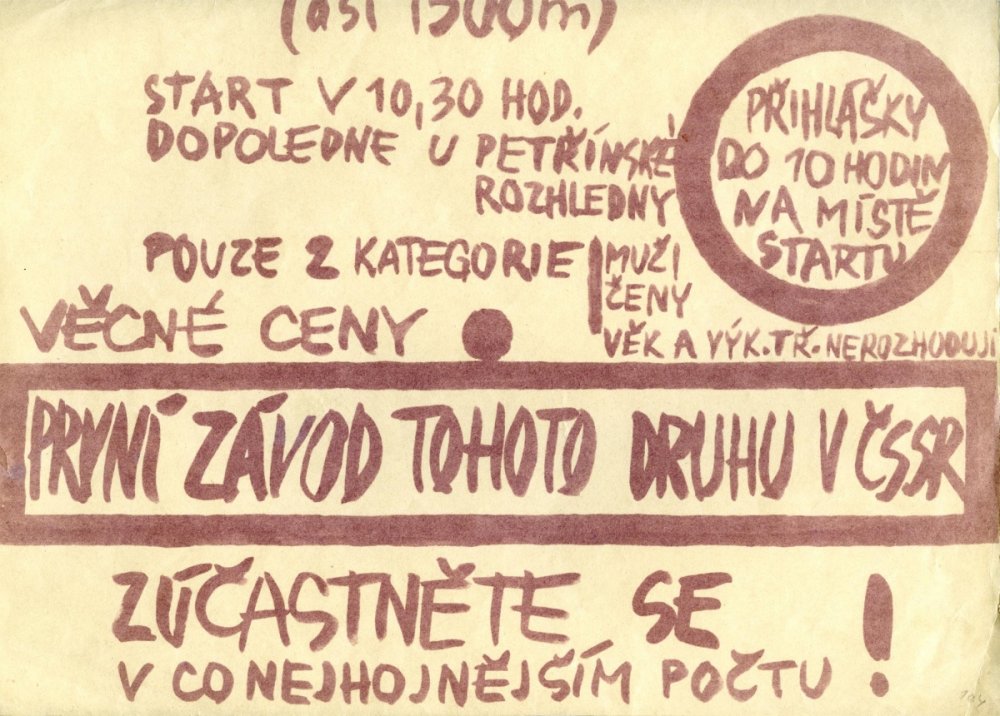 (asi 1500m)
START V 10,30 HOD.
DOPOLEDNE U PETŘÍNSKÉ
ROZHLEDNY
PŘIHLÁŠKY
DO 10 HODIN
NA MÍSTĚ
STARTU
POUZE 2 KATEGORIE
MUŽI
ŽENY
VĚCNÉ CENY
VĚK A VÝK.TŘ. NEROZHODUJÍ
PRVNÍ ZÁVOD TOHOTO DRUHU V ČSSR
ZÚČASTNĚTE SE
V CO NEJHOJNĚJŠÍM POČTU !